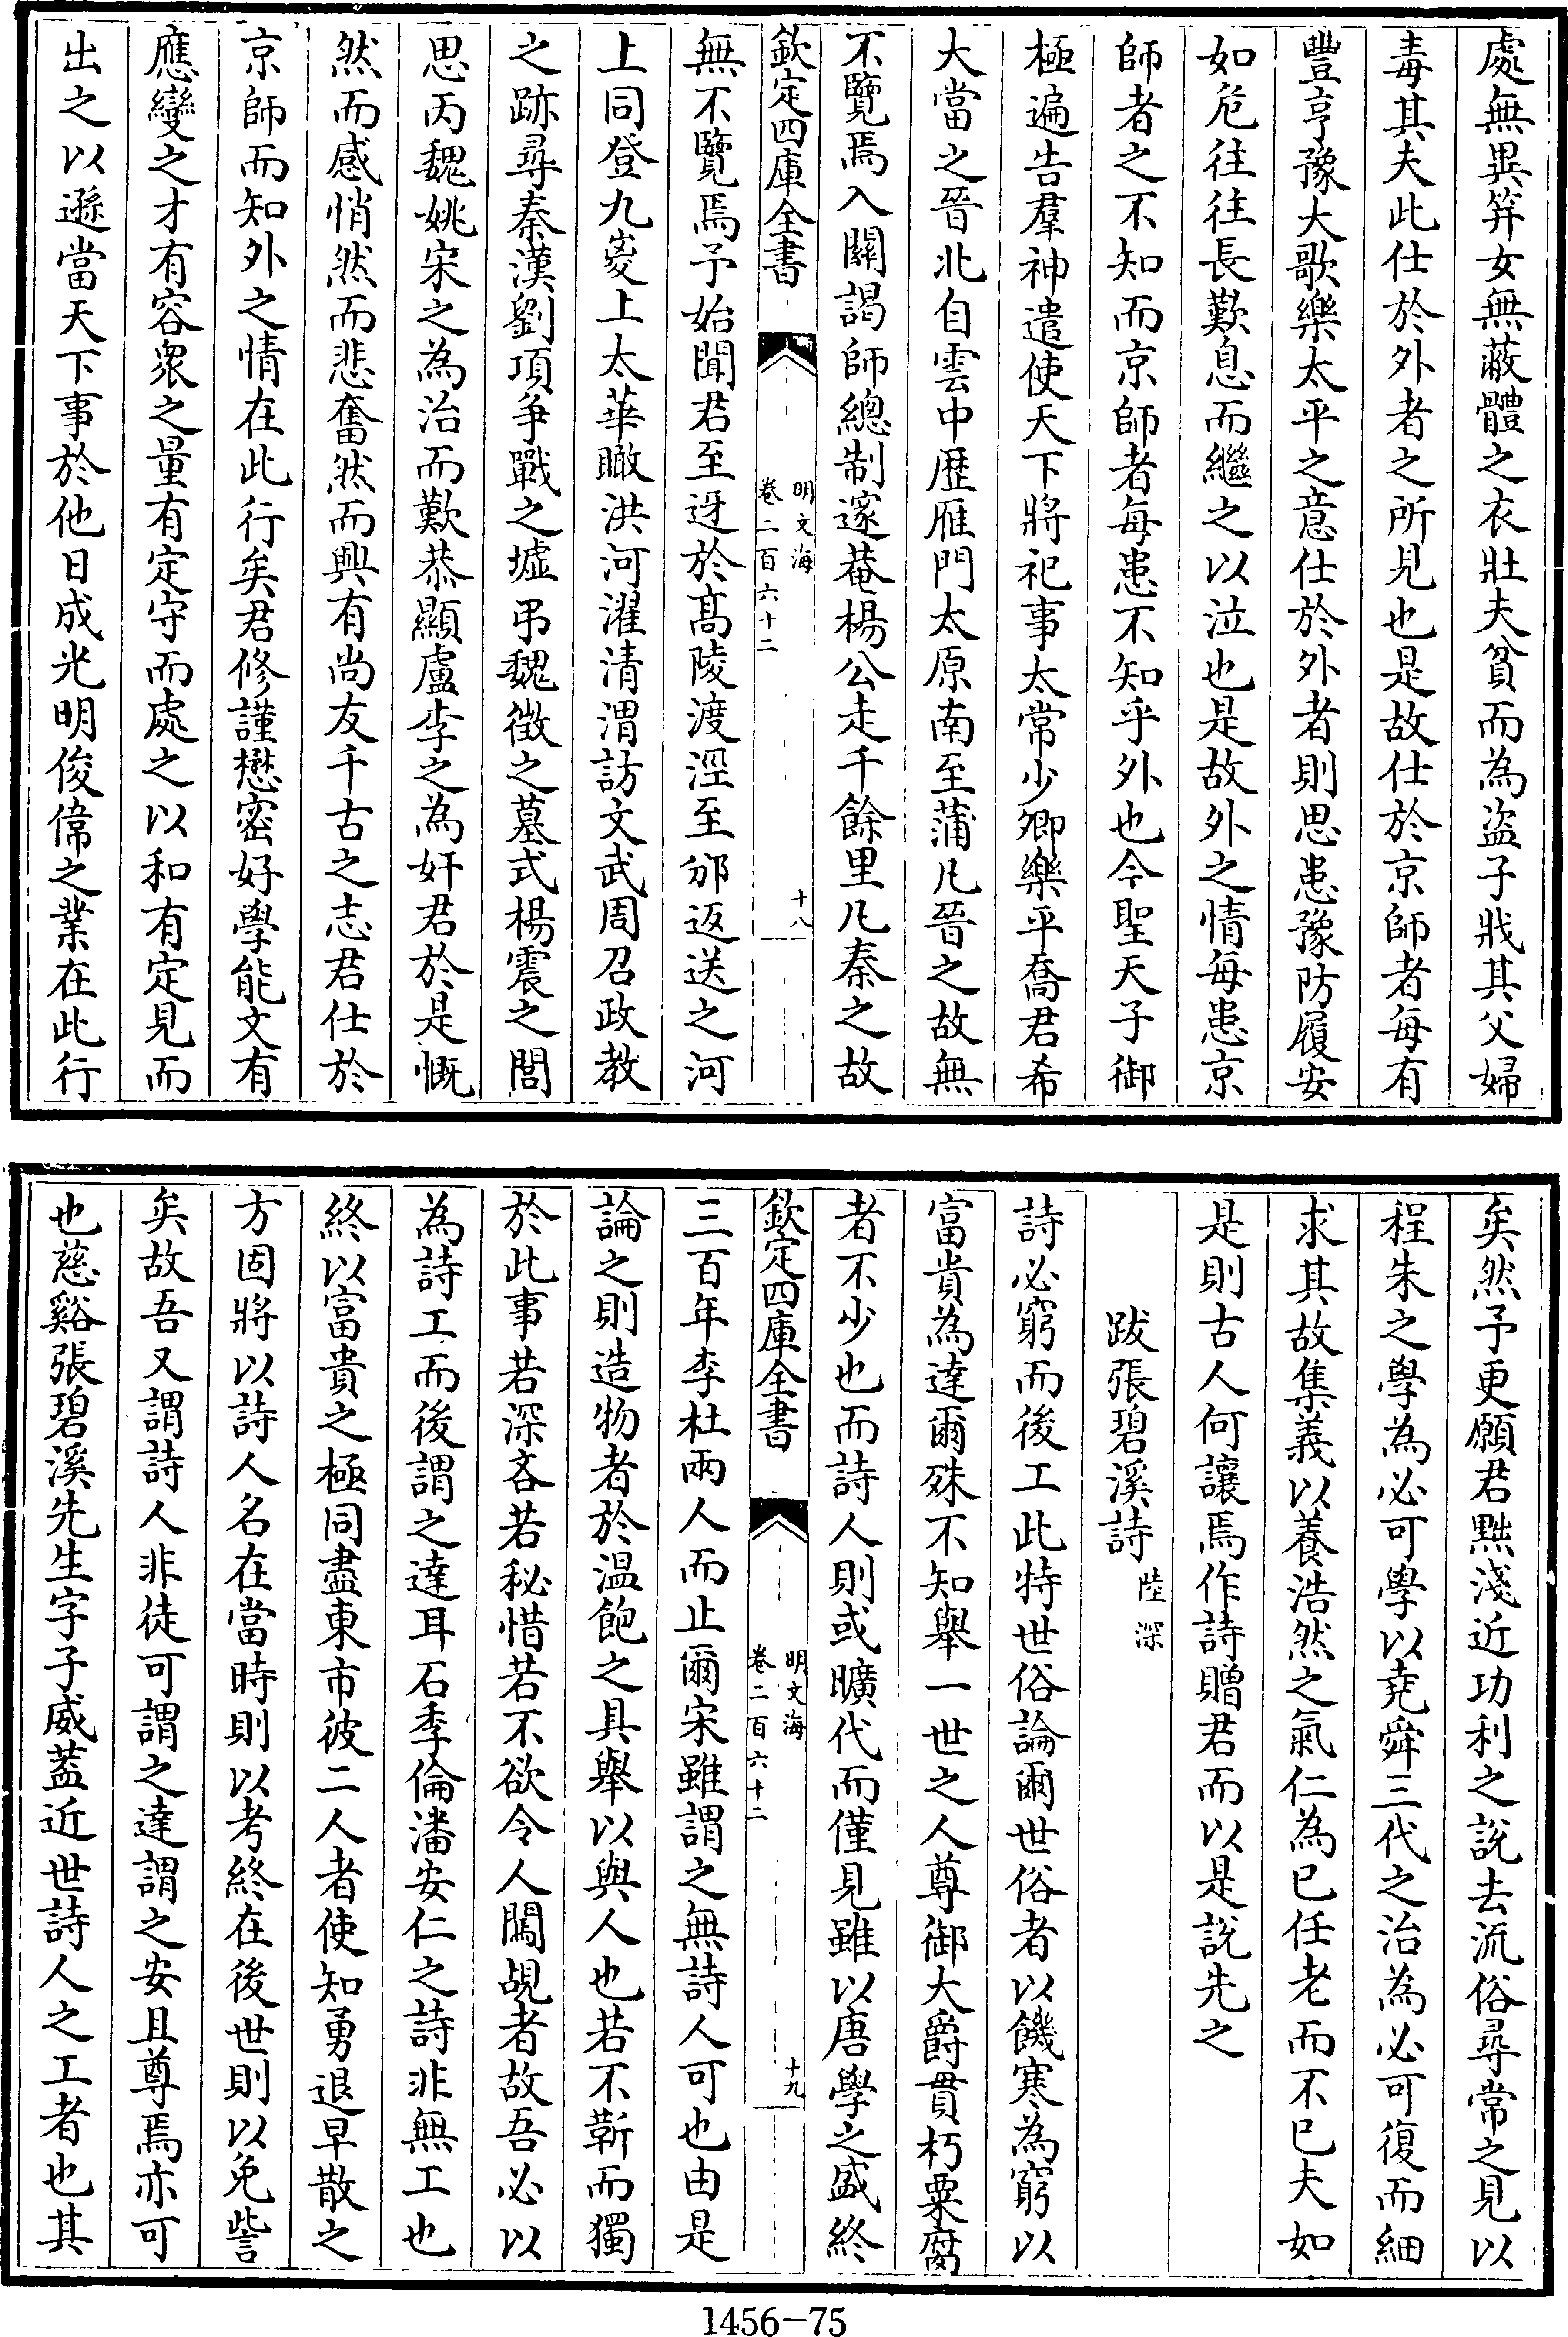 處無異筓女無蔽體之衣壯夫貧而為盗子戕其父婦
毒其夫此仕於外者之所見也是故仕於京師者每有
豐亨豫大歌樂太平之意仕於外者則思患豫防履安
如危往往長歎息而繼之以泣也是故外之情每患京
師者之不知而京師者每患不知乎外也今聖天子御
極遍告羣神遣使天下將祀事太常少卿樂平喬君希
大當之晉北自雲中歴雁門太原南至蒲凡晉之故無
不覽焉入關謁師總制邃菴楊公走千餘里凡秦之故
欽定四庫全書
明文海
卷二百六十二
十八
無不覽焉予始聞君至迓於髙陵渡涇至邠返送之河
上同登九嵏上太華瞰洪河濯清渭訪文武周召政教
之跡尋秦漢劉項爭戰之墟弔魏徵之墓式楊震之閭
思丙魏姚宋之為治而歎恭顯盧李之為奸君於是慨
然而感悄然而悲奮然而興有尚友千古之志君仕於
京師而知外之情在此行矣君修謹懋密好學能文有
應變之才有容衆之量有定守而處之以和有定見而
出之以遜當天下事於他日成光明俊偉之業在此行
矣然予更願君黜淺近功利之說去流俗尋常之見以
程朱之學為必可學以堯舜三代之治為必可復而細
求其故集義以養浩然之氣仁為已任老而不已夫如
是則古人何讓焉作詩贈君而以是說先之
跋張碧溪詩 陸深
詩必窮而後工此特世俗論爾世俗者以饑寒為窮以
富貴為達爾殊不知舉一世之人尊御大爵貫朽粟腐
者不少也而詩人則或曠代而僅見雖以唐學之盛終
欽定四庫全書
明文海
卷二百六十二
十九
三百年李杜兩人而止爾宋雖謂之無詩人可也由是
論之則造物者於温飽之具舉以與人也若不靳而獨
於此事若深吝若秘惜若不欲令人闖覘者故吾必以
為詩工而後謂之達耳石季倫潘安仁之詩非無工也
終以富貴之極同盡東市彼二人者使知勇退早散之
方固將以詩人名在當時則以考終在後世則以免訾
矣故吾又謂詩人非徒可謂之達謂之安且尊焉亦可
也慈谿張碧溪先生字子威葢近世詩人之工者也其
1456-75